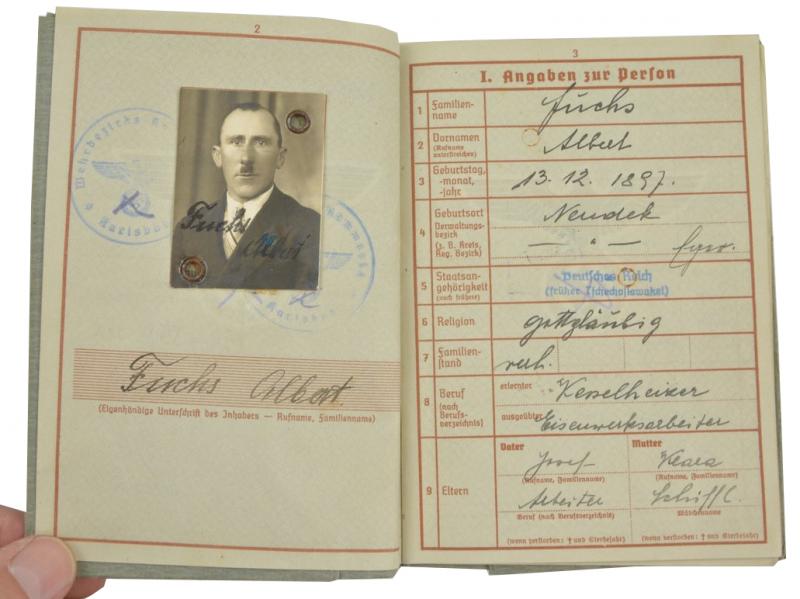 2
Wehrbezirks
Karlsbad
Fuchs
Albert
Karlsbad
Fuchs Albert
(Eigenhändige Unterschrift des Inhabers — Rufname, Familienname)
3
I. Angaben zur Person
1 Familien-name Fuchs
2 Vornamen (Rufname unterstreichen) Albert
3 Geburtstag, -monat, -jahr 13. 12. 1897.
4 Geburtsort Verwaltungsbezirk (z. B. Kreis, Reg. Bezirk) Neudek
— " —
5 Staatsan-gehörigkeit (auch frühere) Deutsches Reich
(früher Tschechoslowakei)
6 Religion gottgläubig
7 Familien-stand verh.
8 Beruf (nach Berufs-verzeichnis) erlernter Kesselheizer
ausgeübter Eisenwerksarbeiter
9 Eltern
Vater Mutter
Josef Klara
(Rufname, Familienname) (Rufname, Familienname)
Arbeiter
Beruf (nach Berufsverzeichnis) Mädchenname
(wenn verstorben: † und Sterbejahr) (wenn verstorben: † und Sterbejahr)